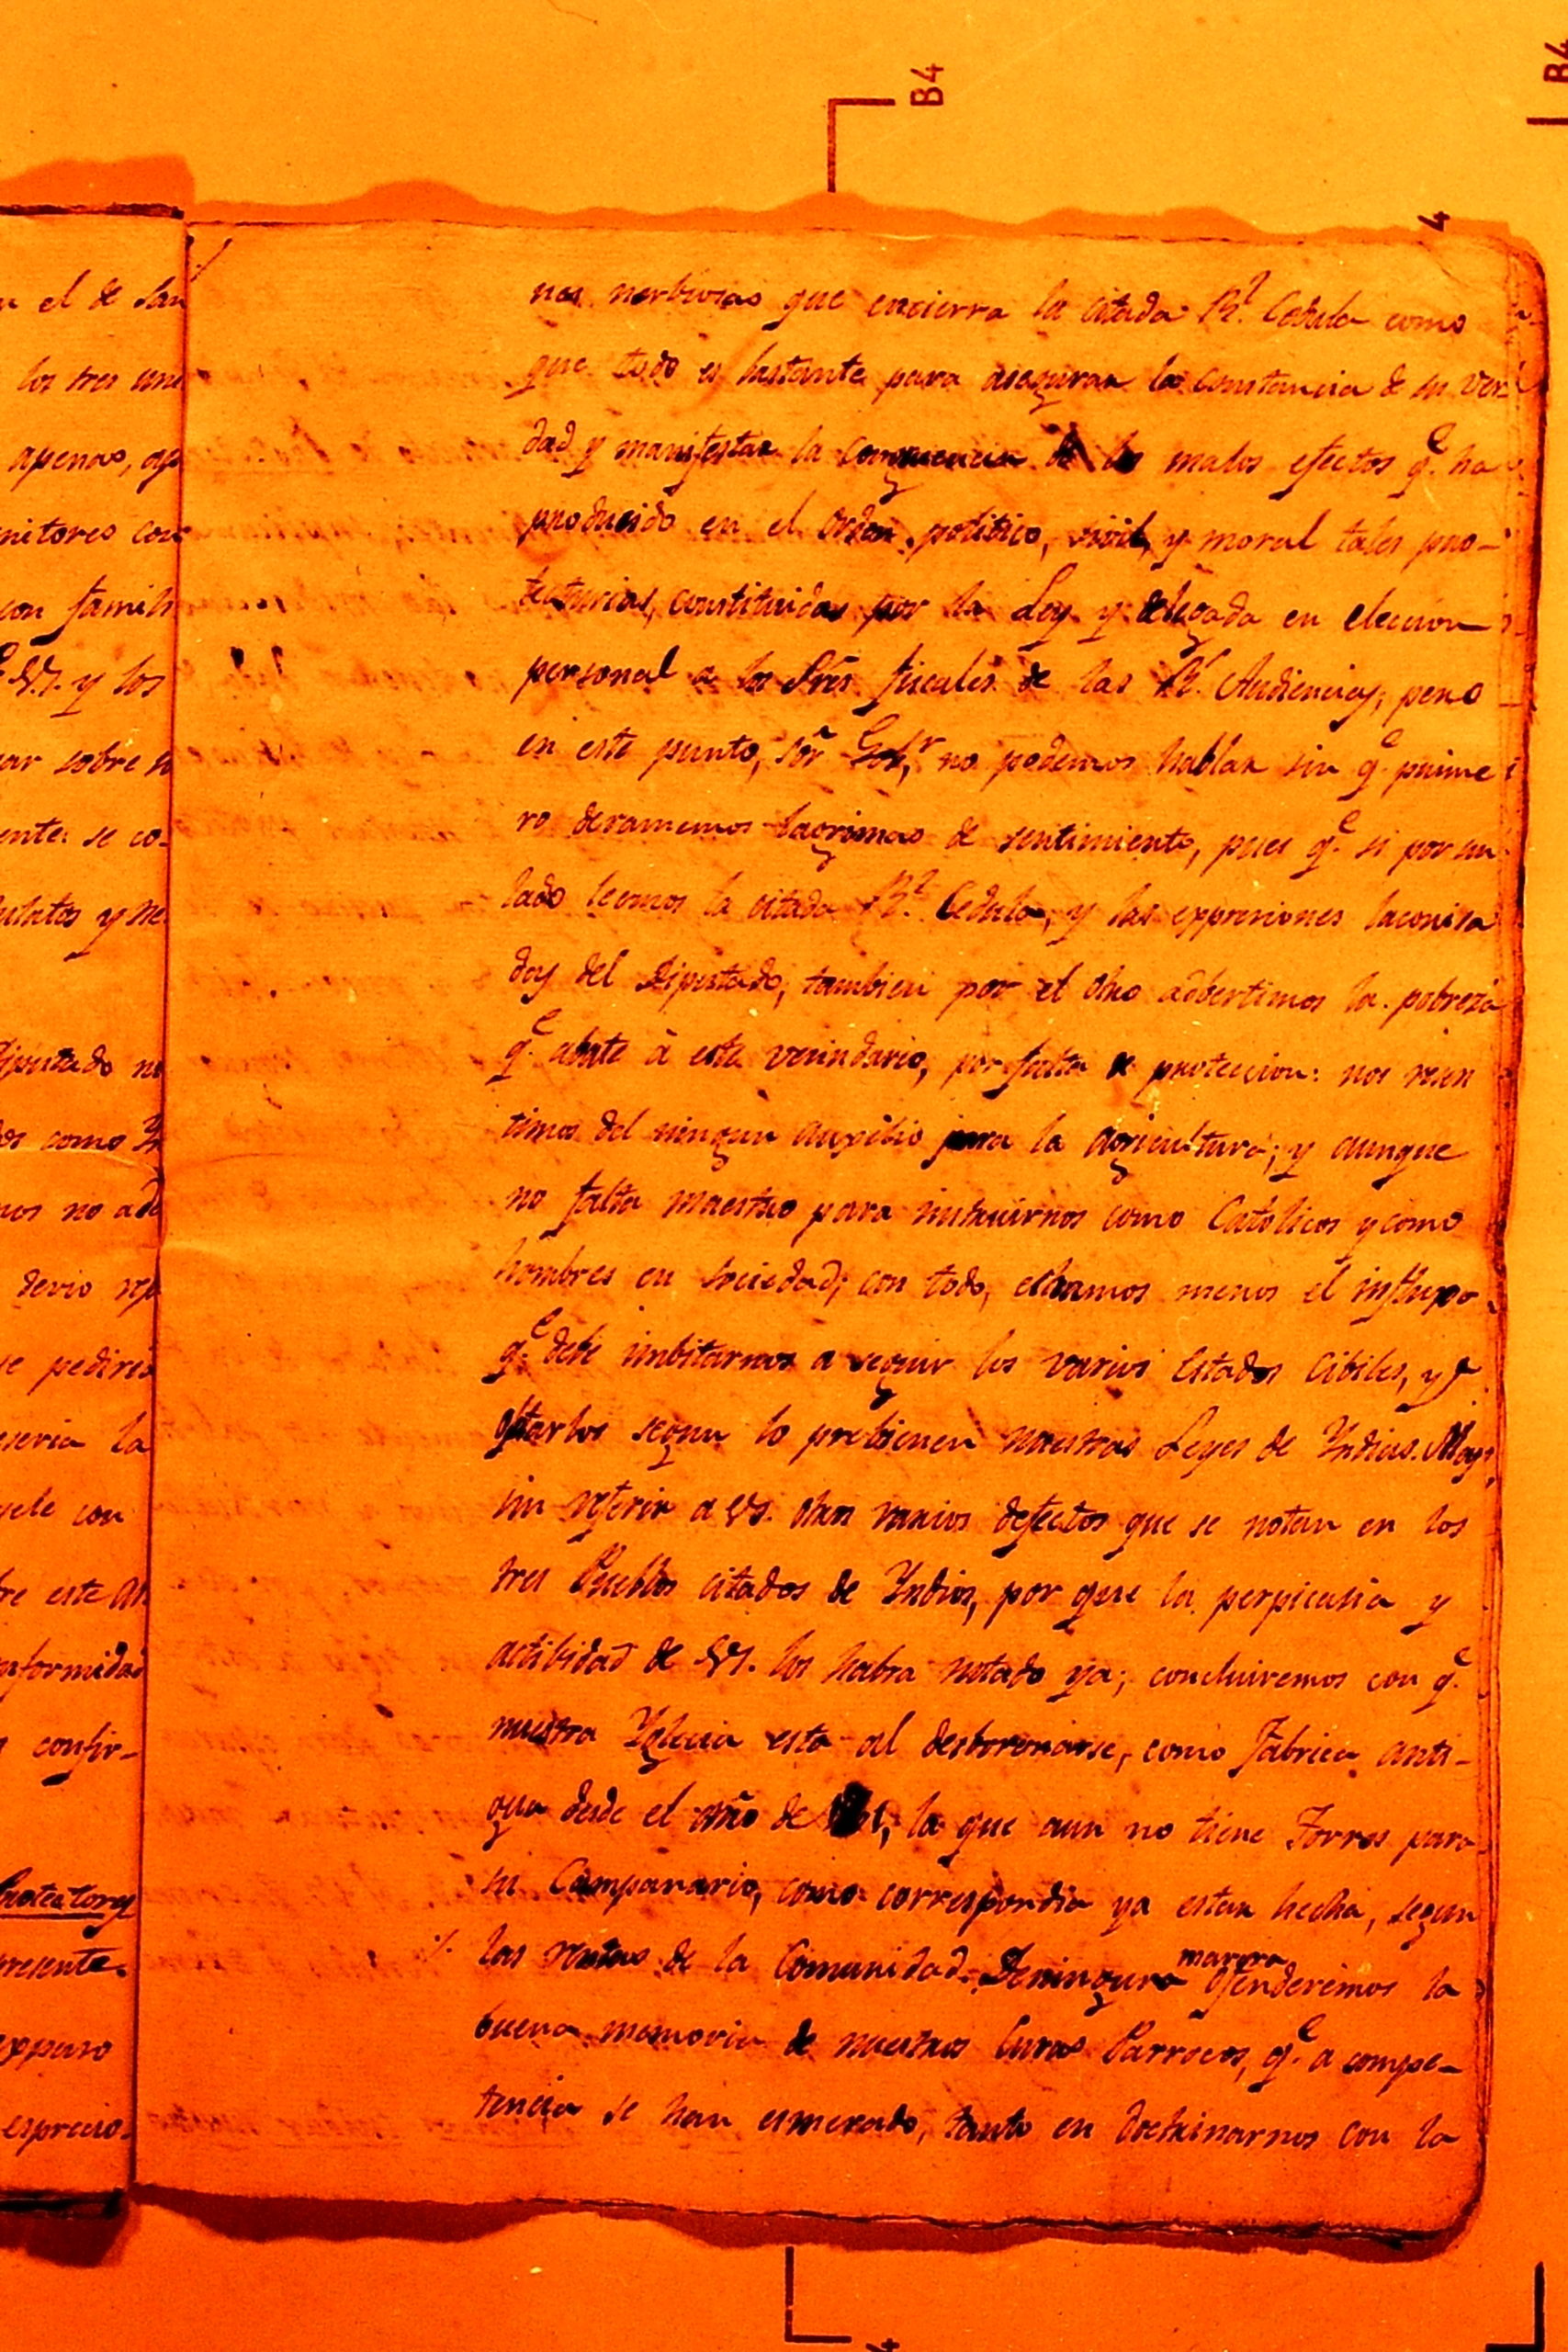 B4
B4
4
n el de San
los tres une
apenas,
nitores con
con famili
S. y los
ar sobre
ente: se co-
ulatos y me
Diputado no
os como Yn
nos no ad
devio rep
se pediria
seria la
con
re este
nformidad
confir-
Protectory
presente.
expreso
nes nerbiosas que encierra la citada Rl. Cedula como
que todo es bastante para asegurar la constancia de su ver-
dad y manifestar la de los malos efectos qe. ha
producido en el orden politico, sivil, y moral tales pro-
tecturias, constituidas por la Ley y delegada en eleccion
personal a los Sres fiscales de las Rs. Audiencias; pero
en este punto, Sor. Gobr, no podemos hablar sin qe. prime
ro deramemos lagrimas de sentimiento, pues qe. si por un
lado leemos la citada Rl. Cedula, y las expresiones laconisa
das del Diputado, tambien por el otro adbertimos la pobreza
qe. abate à este vecindario, por falta de proteccion: nos resen
timos del ningun auxilio para la agricultura; y aunque
no falta maestro para instruirnos como Catolicos y como
hombres en sociedad; con todo, echamos menos el influxo
qe. debe imbitarnos a seguir los varios Estados Cibiles, y
optarlos segun lo prebienen nuestras Leyes de Yndias. Mas,
sin referir a VS. otros varios defectos que se notan en los
tres Pueblos citados de Yndios, por que la perpicasia y
actibidad de VS. los habra notado ya; concluiremos con qe.
nuestra Yglecia esta al desboronarse, como Fabrica anti-
gua desde el año de la que aun no tiene Torres para
su Campanario, como correspondia ya estar hecha, segun
las rentas de la Comunidad. De ninguna manera ofenderemos la
buena memoria de nuestros Curas Parrocos, qe. a compe-
tencia se han esmerado, tanto en doctrinarnos con la